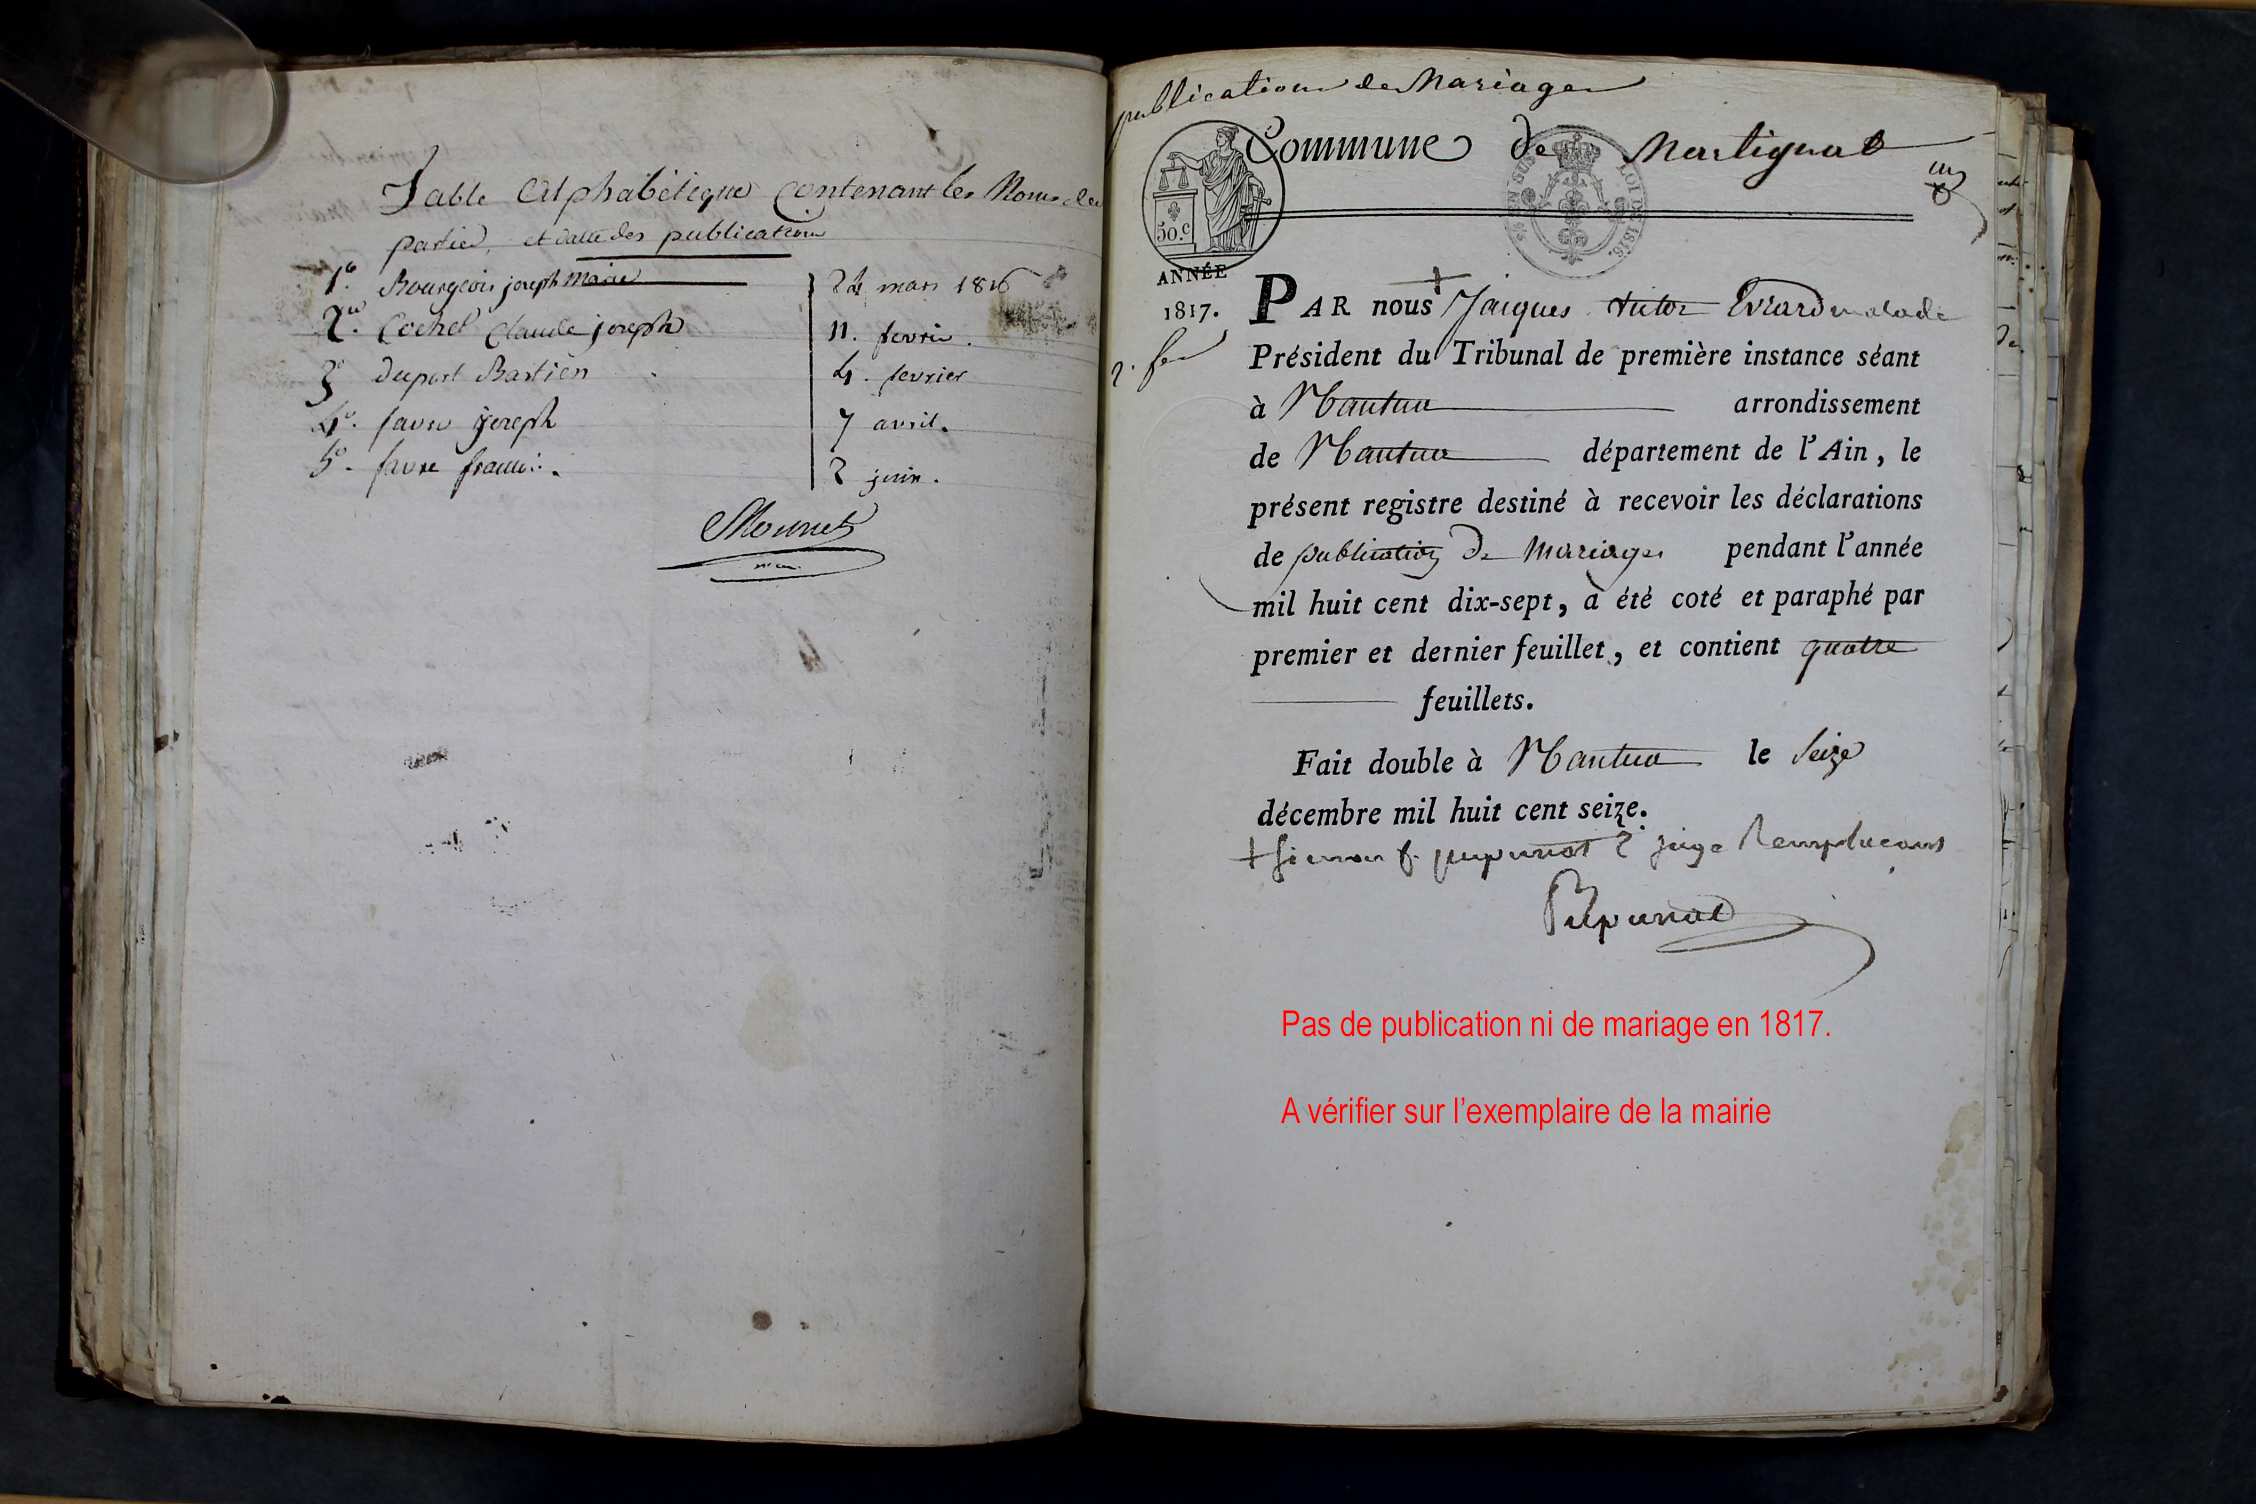 Table Alphabétique Contenant les Noms des
parties, et datte des publications
1º. Bourgeois joseph Marie 24 mars 1816
2º. Cochet Claude joseph 11. fevrier.
3º duport Bastien 4. fevrier
4º. favre joseph 7 avril.
5º. favre francois. 2 juin.
Mounet
publications de Mariages
Commune de Martignat
un
50.c
SUS LOI DE 1816.
ANNÉE
1817.
2. fer
PAR nous + Jacques Victor Evrard malade
Président du Tribunal de première instance séant
à Nantua arrondissement
de Nantua département de l'Ain, le
présent registre destiné à recevoir les déclarations
de publication de Mariages pendant l'année
mil huit cent dix-sept, a été coté et paraphé par
premier et dernier feuillet, et contient quatre
feuillets.
Fait double à Nantua le Seize
décembre mil huit cent seize.
+ pupunat juge Remplacant
Pupunat
Pas de publication ni de mariage en 1817.
A vérifier sur l'exemplaire de la mairie